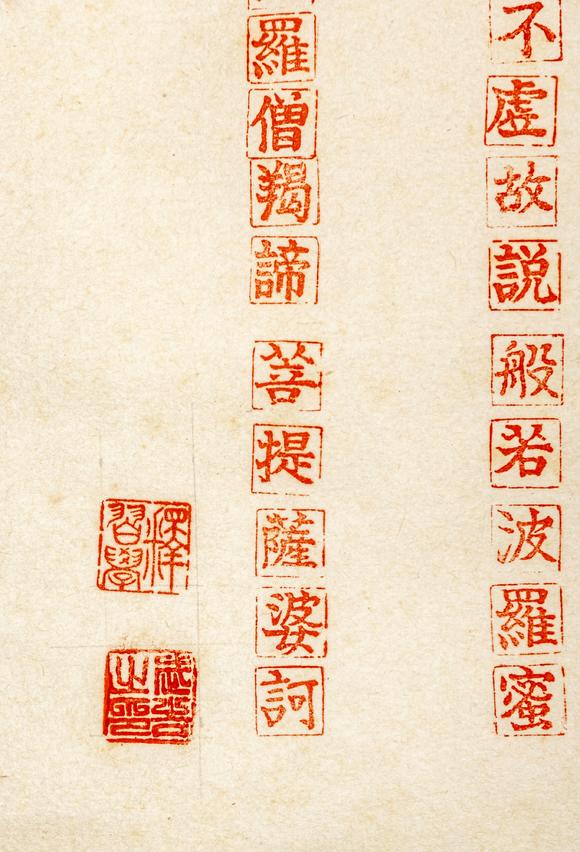 不虛故説般若波羅蜜
羅僧羯諦菩提薩婆訶
習學
之印